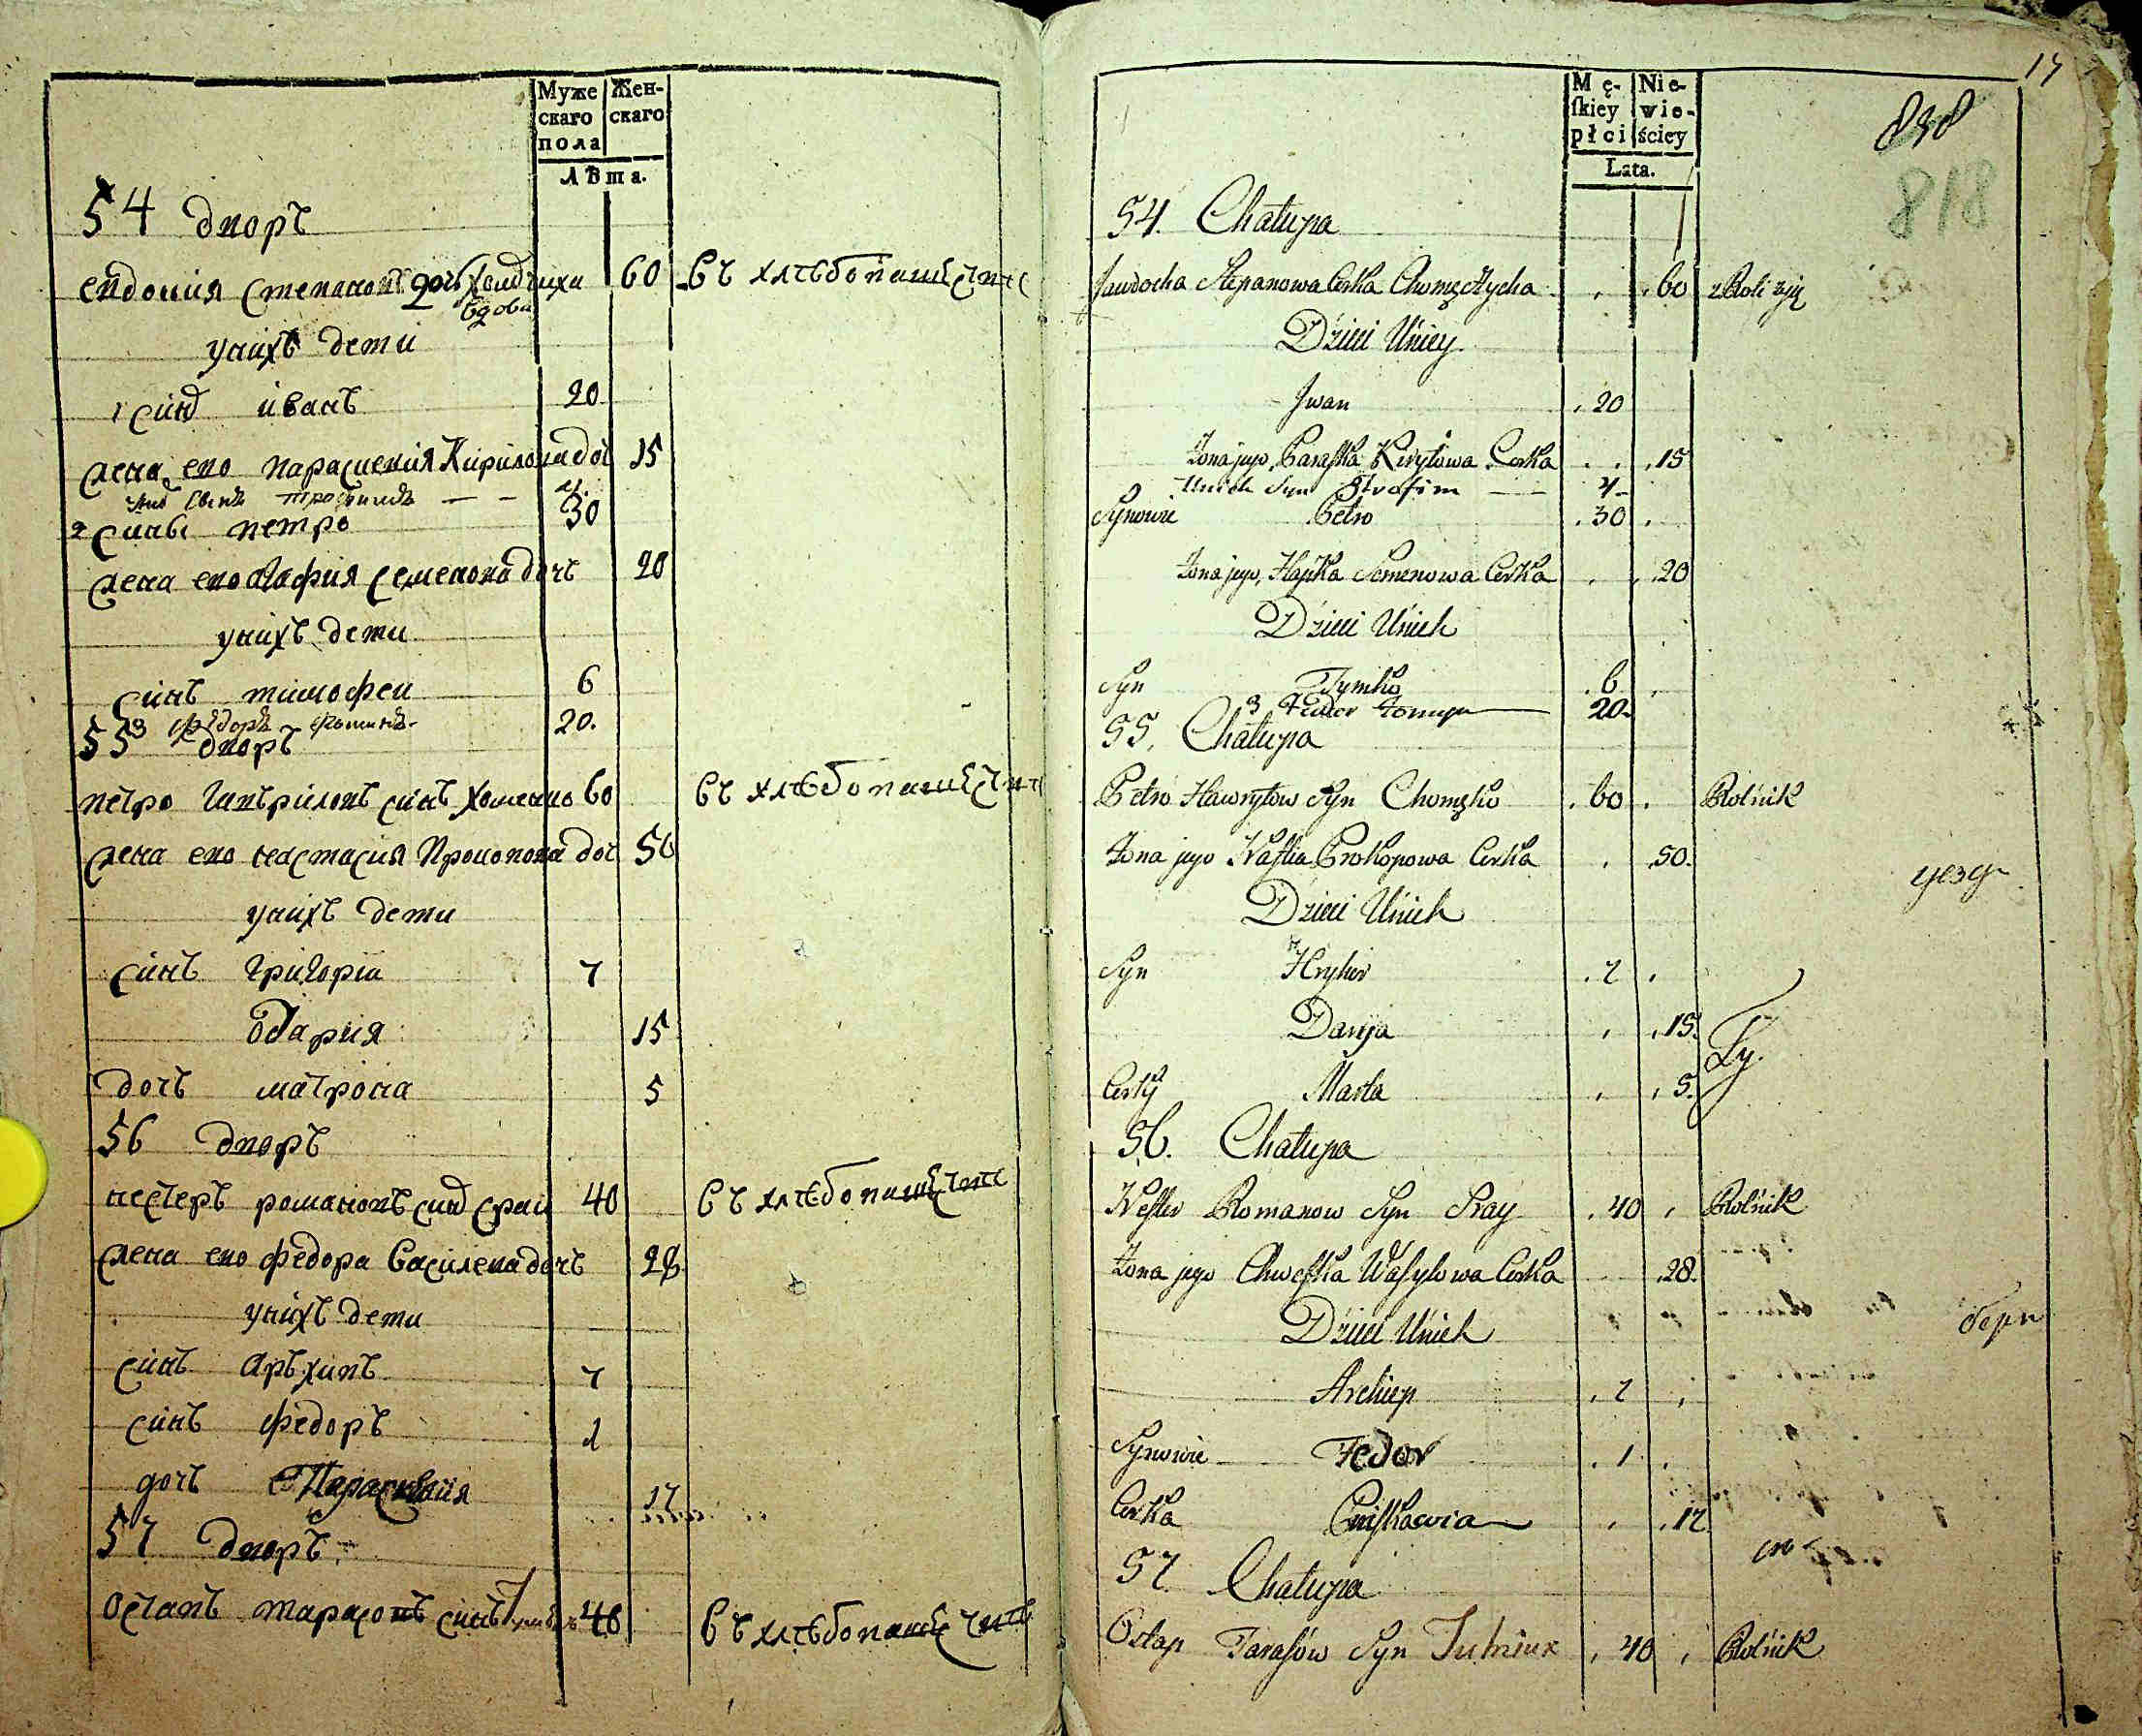 Муже
скаго
пола
Жен-
скаго
Лѣта.
54 дворъ
евдокия степанова дочь Хомдчиха 60 въ хлѣбопашестве
вдова
унихъ дети
1 синъ иванъ 20
жена его параскевия Кирилова доч 15
трофимъ — — 4
2 сины петро 30
жена его агафия семенова дочъ 20
унихъ дети
синъ тимофеи 6
3 Ѳедоръ 20.
55 дворъ
петро гаврыловъ синъ хоменко 60 въ хлѣбопашестве
жена его настасия Прокопова доч 50
унихъ дети
синъ григории 7
дария 15
дочъ матрона 5
56 дворъ
нестеръ романовъ синъ срай 40 въ хлѣбопашестве
жена его федора василева дочъ 28
унихъ дети
синъ архипъ 7
синъ федоръ 1
дочъ Параскевия 17
57 дворъ
остапъ тарасовъ синъ 40 въ хлѣбопашестве
17
Mę-
ſkiey
płci
Nie-
wie-
ściey
Lata.
838
818
54. Chałupa
Jawdocha Stepanowa Corka Chomęczycha 60 z Roli żyje
Dzieci Uniey
Jwan 20
Żona jego, Paraſka Kiryłowa Corka 15
Unich Syn Strofim — 4
Synowie Petro 30
Żona jego, Hapka Semenowa Corka 20
Dzieci Unich
Syn Tymko 6
3 Feder — 20.
55. Chałupa
Petro Hawryłow Syn Chomęko 60 Rolnik
Żona jego Naſtia Prokopowa Corka 50.
Dzieci Unich
Syn Hryhor 7
Darya 15.
Corky Marta 5.
56. Chałupa
Neſter Romanow Syn Sray 40 Rolnik
Żona jego Chweſka Waſylowa Corka 28.
Dzieci Unich
Archiep 7
Synowie Fedor 1
Corka 17
57 Chałupa
Ostap Taraſów Syn 40 Rolnik